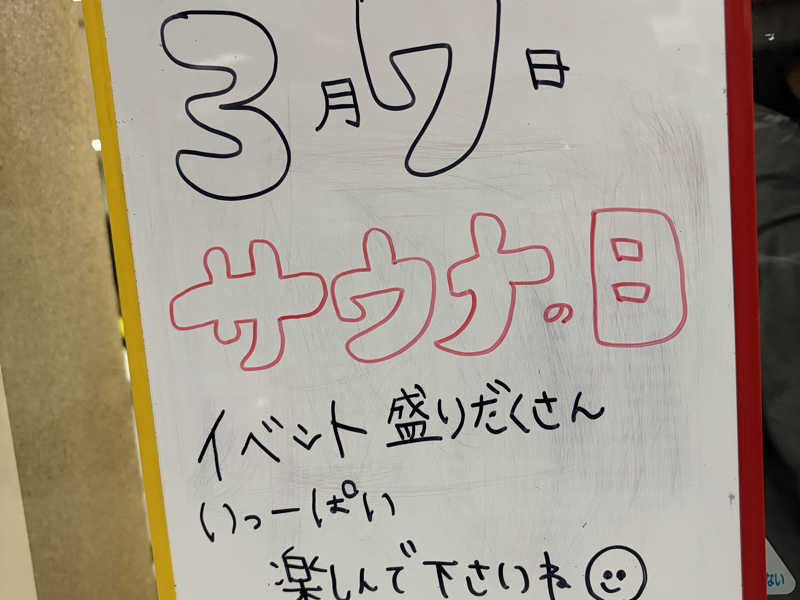 3月7日
サウナの日
イベント盛りだくさん
いっーぱい
楽しんで下さいね
ない